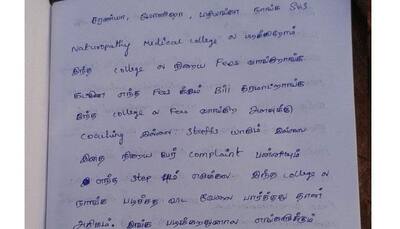 சரண்யா, மோனிஷா, பிரியங்கா நாங்க SVS
Naturopathy Medical College ல படிக்கிறோம்
இந்த College ல நிறைய Fees வாங்கறாங்க
எந்த Fees க்கும் Bill தரமாட்றாங்க
இந்த College ல Fees வாங்குற அளவுக்கு
Coaching இல்லை Staffs யாரும் இல்லை
இதை நிறைய பேர் Complaint பண்ணியும்
எந்த Step ம் எடுக்கல இந்த College ல
நாங்க படிச்சத விட வேலை பார்த்தது தான்
அதிகம். இங்க படிக்கிறதுனால எங்களுக்கும்